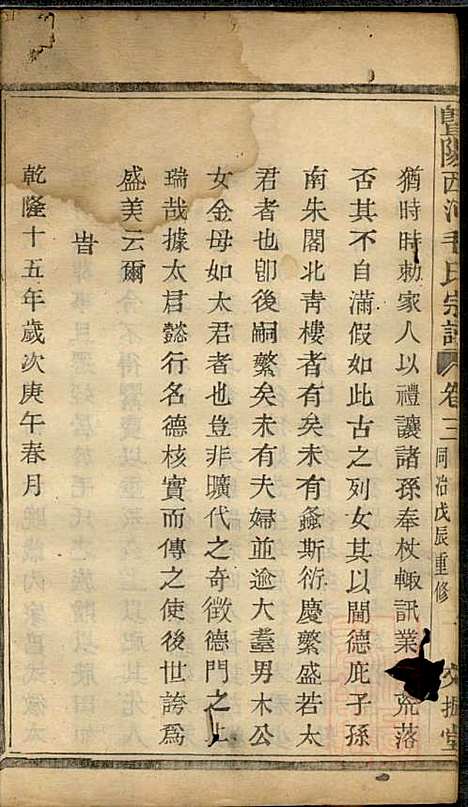 暨陽西河毛氏宗譜 卷三 同治戊辰重修 一 堂
猶時時勅家人以禮讓諸孫奉杖輙訊業荒落
否其不自滿假如此古之列女其以閫德庇子孫
南朱閣北青樓者有矣未有螽斯衍慶繁盛若太
君者也卽後嗣繁矣未有夫婦並逾大耋男木公
女金母如太君者也豈非曠代之奇徵德門之上
瑞哉據太君懿行名德核實而傳之使後世誇為
盛美云爾
旹
乾隆十五年歲次庚午春月